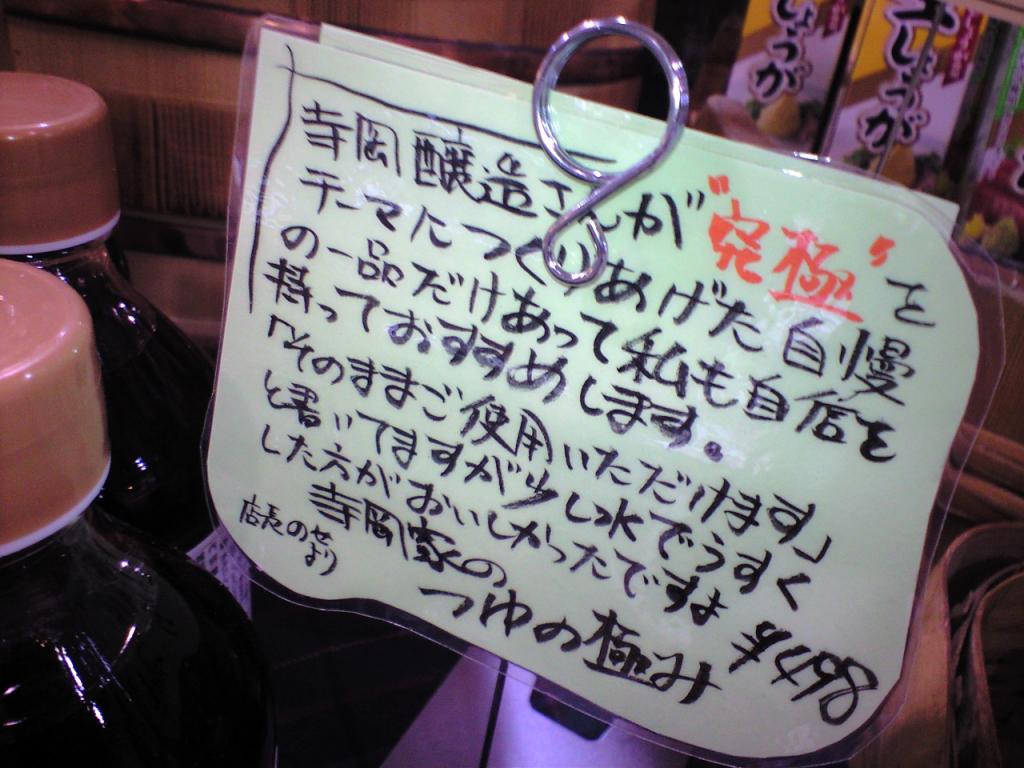 しょうが
しょうが
寺岡醸造さんが"究極"を
テーマにつくりあげた自慢
の一品だけあって私も自信を
持っておすすめします。
「そのままご使用いただけます」
と書いてますが少し水でうすく
した方がおいしかったですよ
寺岡家の
つゆの極み
¥498
店長のせ
より